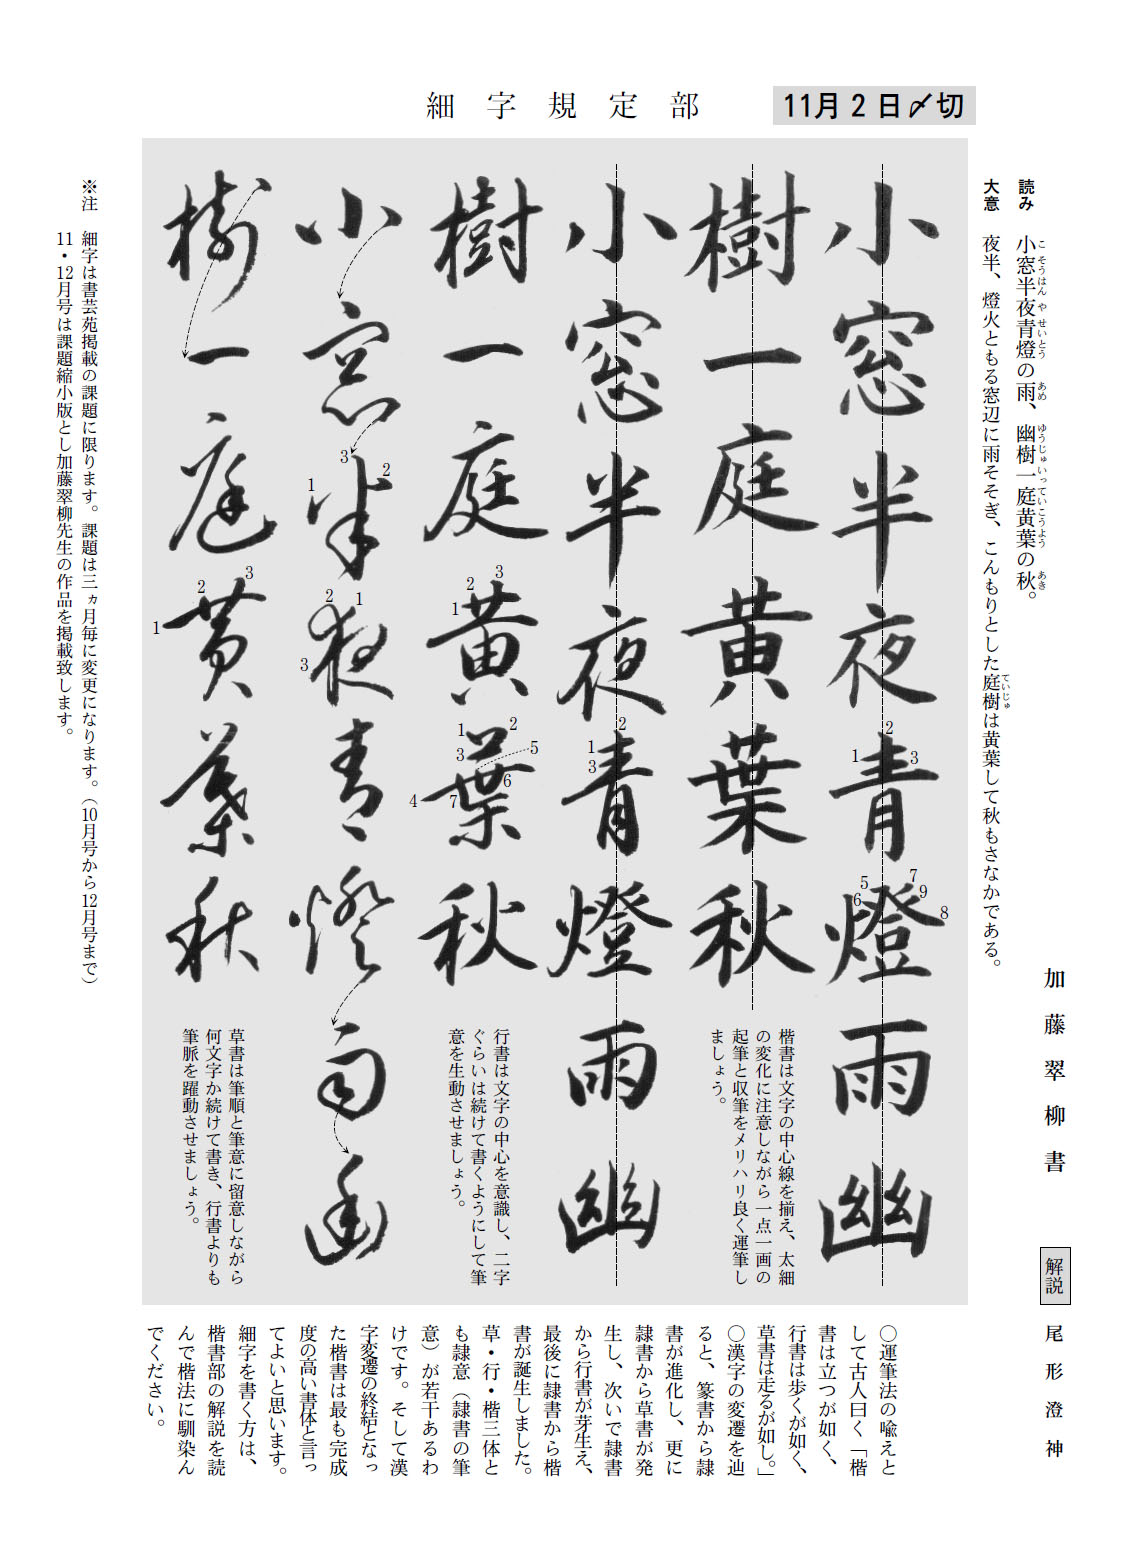 細字規定部
11月2日〆切
読み　小窓半夜青燈の雨、幽樹一庭黄葉の秋。
こ そうはん や せいとう あめ ゆうじゅ いっ てい こうよう あき
大意　夜半、燈火ともる窓辺に雨そそぎ、こんもりとした庭樹は黄葉して秋もさなかである。
ていじゅ
加藤翠柳書
解説　尾形澄神
小窓半夜青燈雨幽
1 2 3 5 6 7 9 8
樹一庭黄葉秋
楷書は文字の中心線を揃え、太細
の変化に注意しながら一点一画の
起筆と収筆をメリハリ良く運筆し
ましょう。
小窓半夜青燈雨幽
1 2 3
樹一庭黄葉秋
1 2 3
1 2 3 4 5 6 7
行書は文字の中心を意識し、二字
ぐらいは続けて書くようにして筆
意を生動させましょう。
小窓半夜青燈雨幽
1 2 3
1 2 3
樹一庭黄葉秋
1 2 3
草書は筆順と筆意に留意しながら
何文字か続けて書き、行書よりも
筆脈を躍動させましょう。
○運筆法の喩えと
して古人曰く「楷
書は立つが如く、
行書は歩くが如く、
草書は走るが如し。」
○漢字の変遷を辿
ると、篆書から隷
書が進化し、更に
隷書から草書が発
生し、次いで隷書
から行書が芽生え、
最後に隷書から楷
書が誕生しました。
草・行・楷三体と
も隷意（隷書の筆
意）が若干あるわ
けです。そして漢
字変遷の終結となっ
た楷書は最も完成
度の高い書体と言っ
てよいと思います。
細字を書く方は、
楷書部の解説を読
んで楷法に馴染ん
でください。
※注　細字は書芸苑掲載の課題に限ります。課題は三ヵ月毎に変更になります。（10月号から12月号まで）
11・12月号は課題縮小版とし加藤翠柳先生の作品を掲載致します。